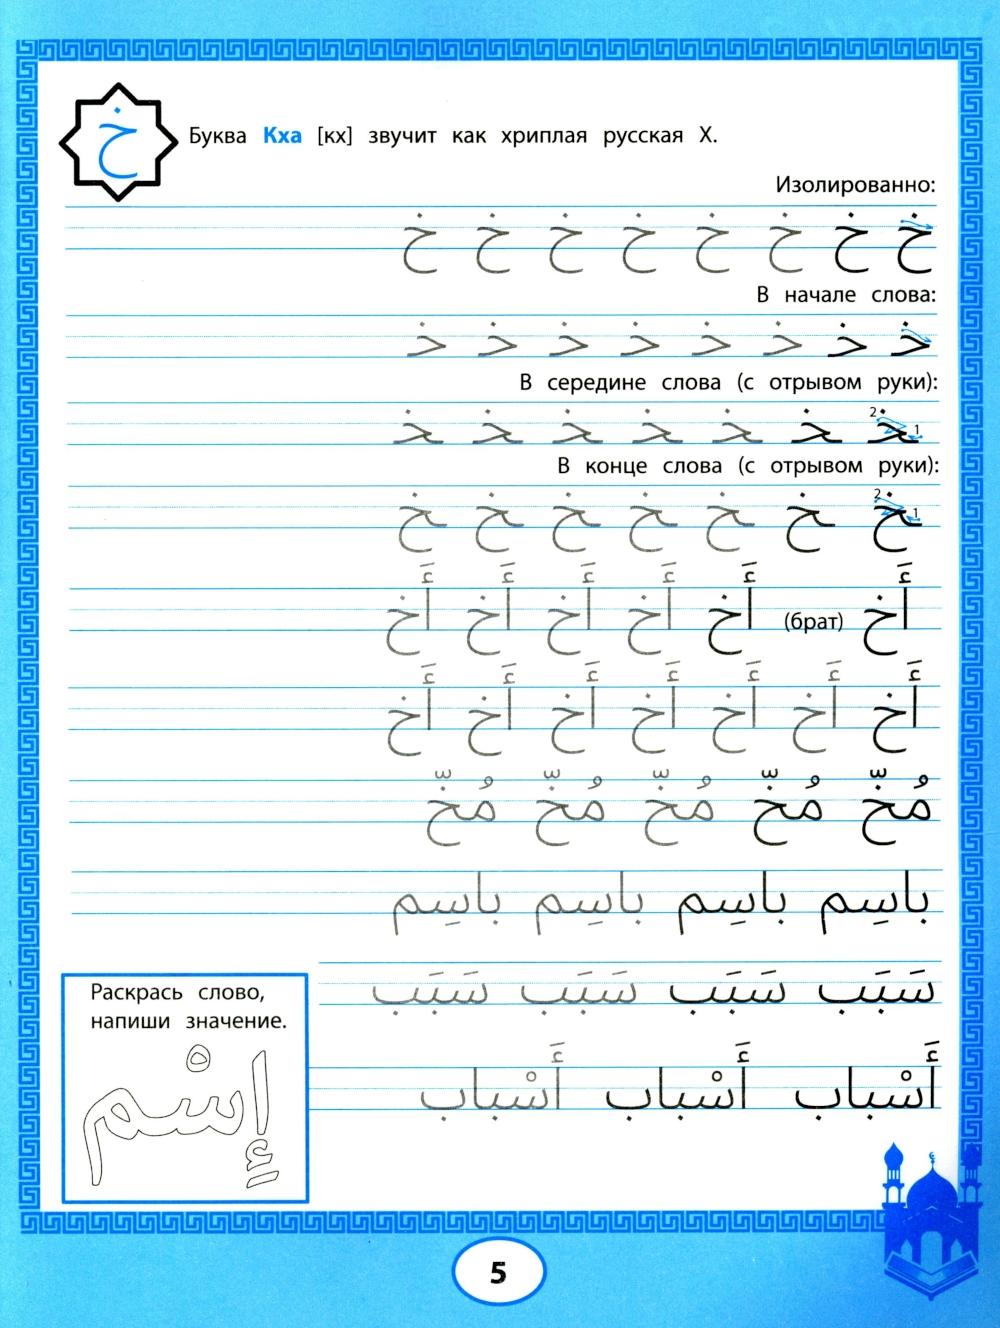 خ
Буква Кха [кх] звучит как хриплая русская Х.
Изолированно:
خ خ خ خ خ خ خ خ
В начале слова:
خـ خـ خـ خـ خـ خـ خـ خـ
В середине слова (с отрывом руки):
1 2 ـخـ ـخـ ـخـ ـخـ ـخـ ـخـ ـخـ
В конце слова (с отрывом руки):
1 2 ـخ ـخ ـخ ـخ ـخ ـخ ـخ
أَخ (брат) أَخ أَخ أَخ أَخ أَخ
أَخ أَخ أَخ أَخ أَخ أَخ أَخ
مُخّ مُخّ مُخّ مُخّ مُخّ
باسِم باسِم باسِم باسِم
سَبَب سَبَب سَبَب سَبَب
أَسْباب أَسْباب أَسْباب
Раскрась слово,
напиши значение.
إِسْم
5